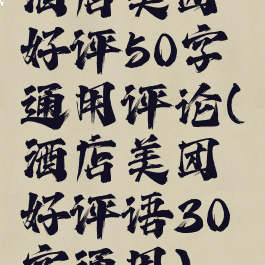 酒店美团
好评50字
通用评论(
酒店美团
好评语30
字通用)